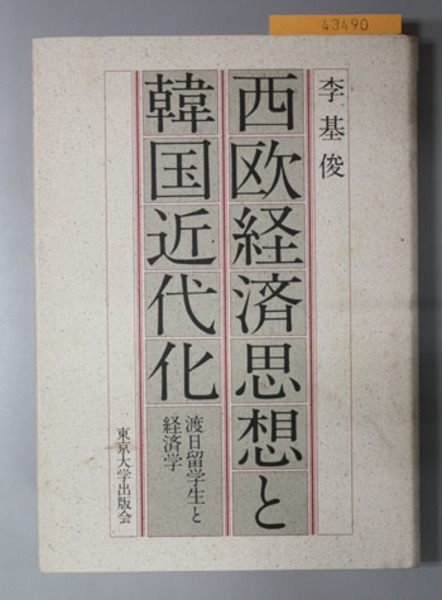 43490
李基俊
西欧経済思想と
韓国近代化
渡日留学生と
経済学
東京大学出版会